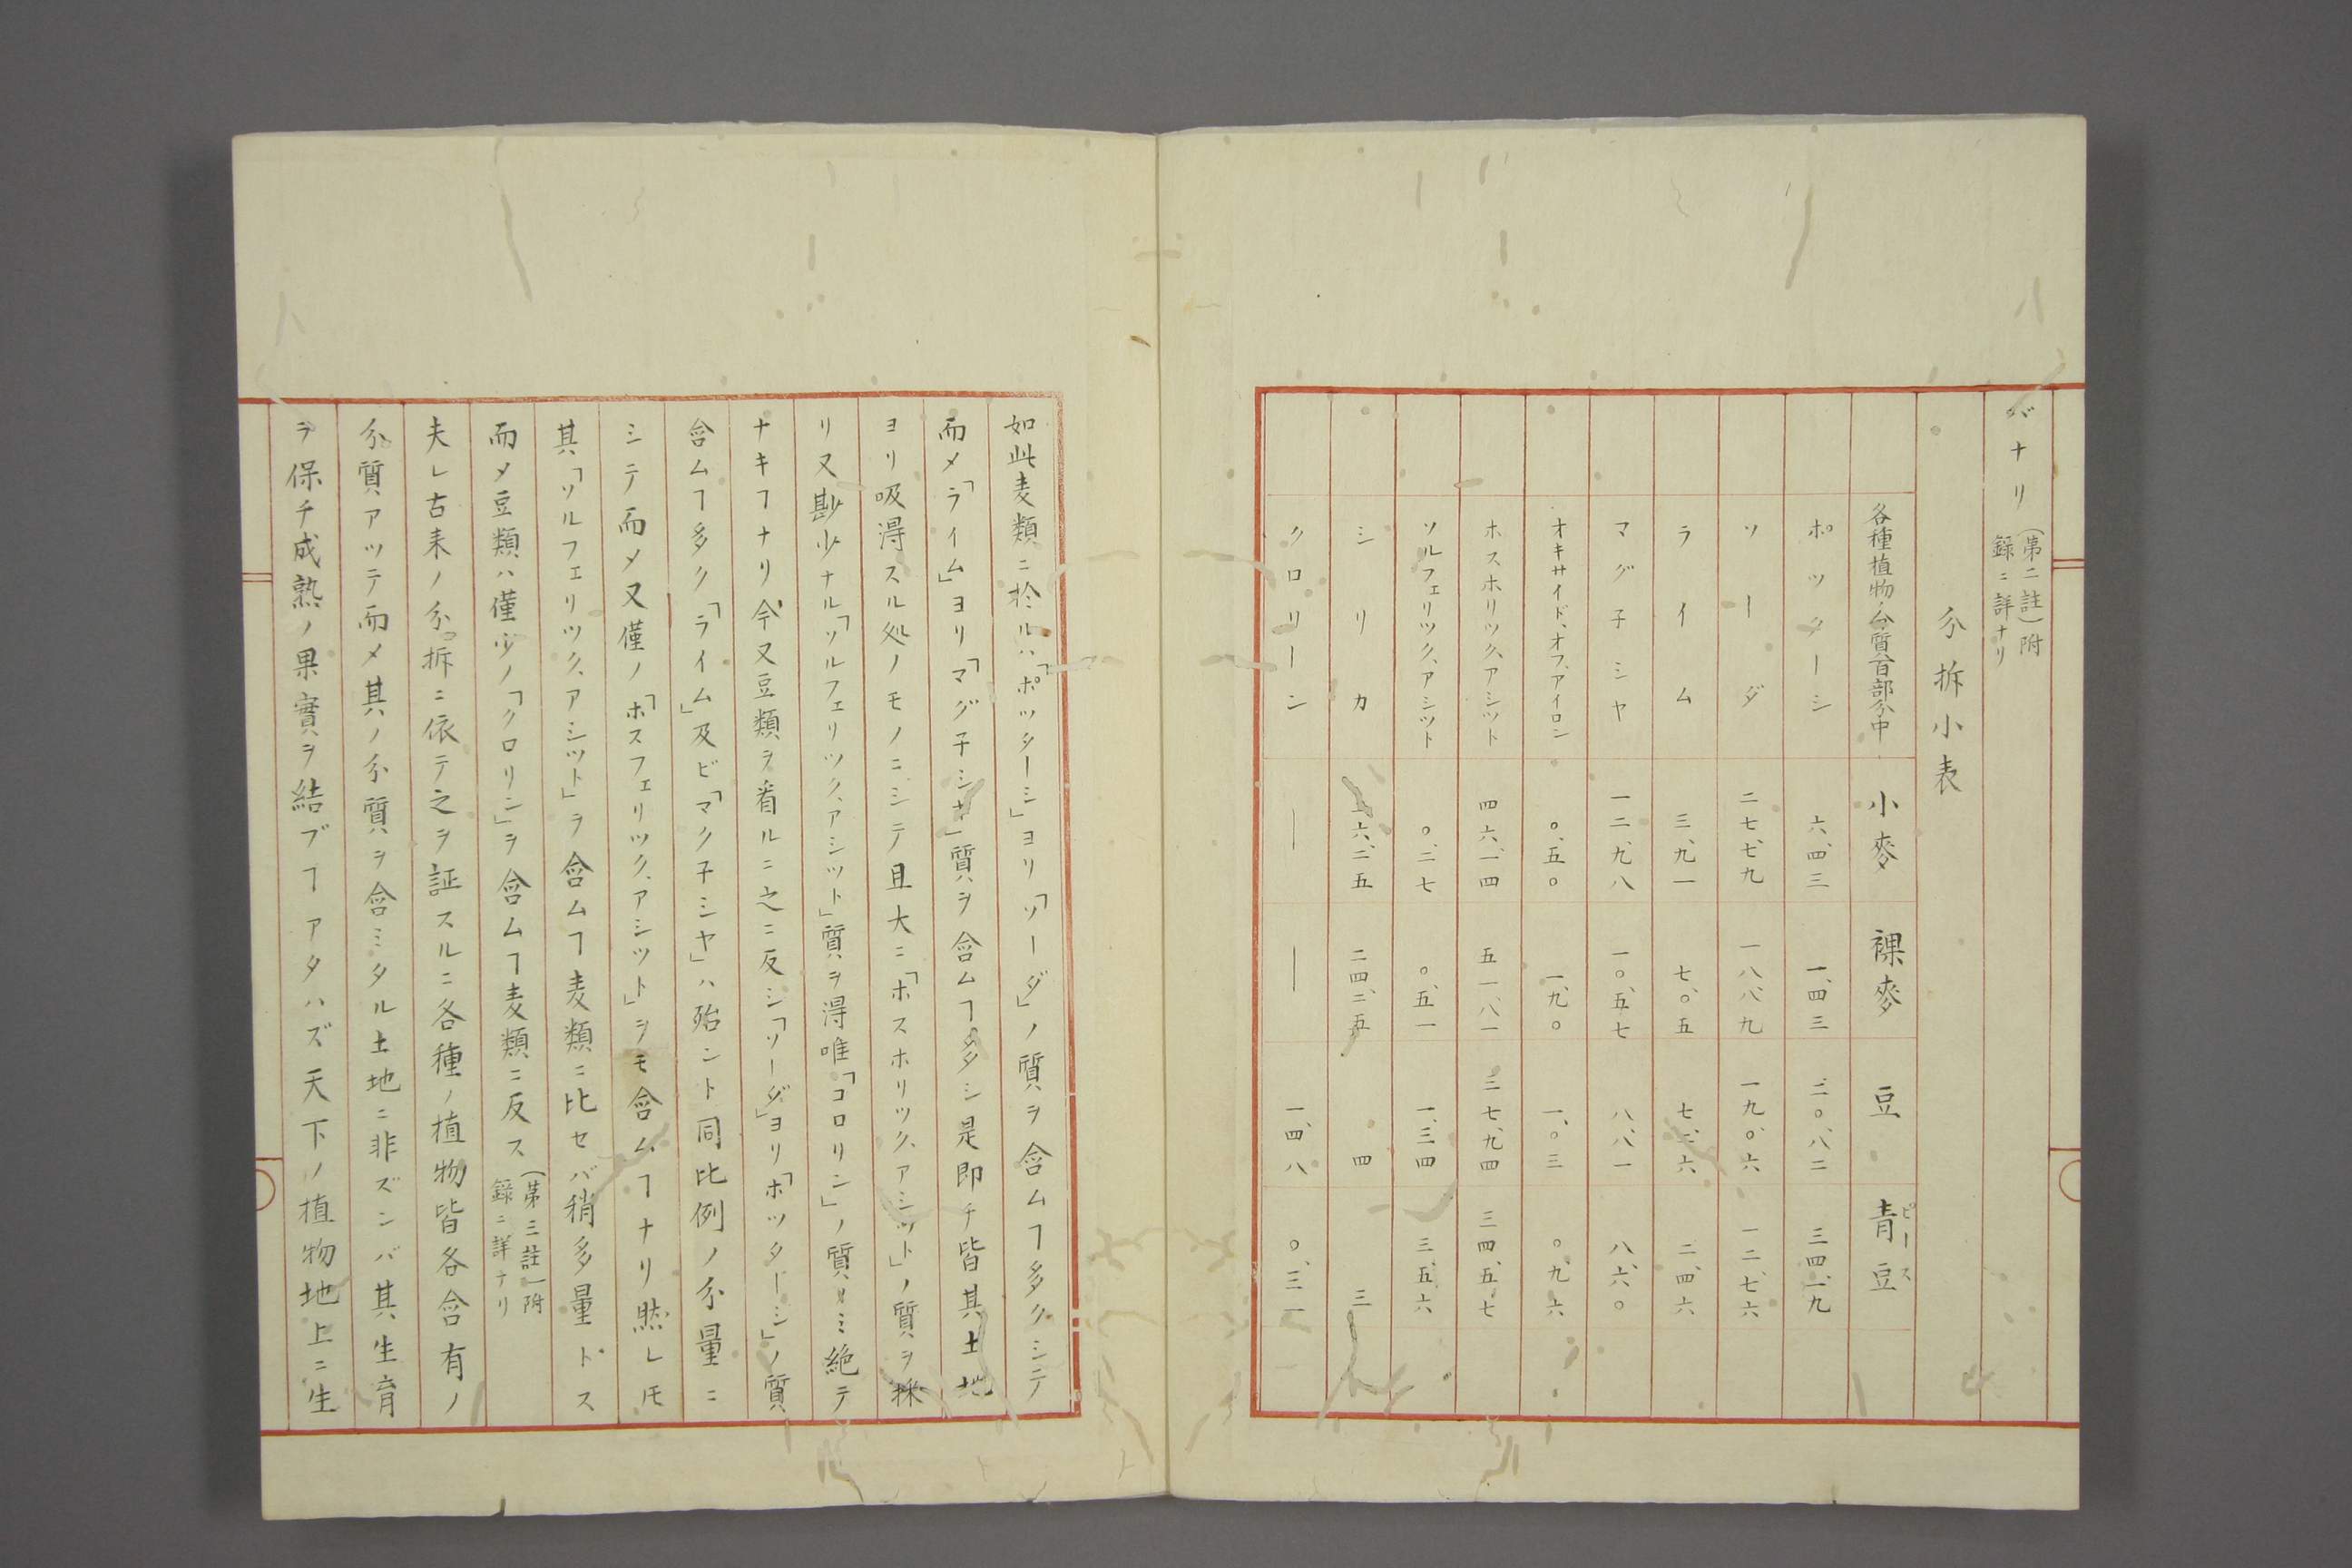 バナリ(第二註)附録ニ詳ナリ
分拆小表
各種植物ノ分質百部分中 小麥 裸麥 豆 青豆ピース
ポツターシ 六、四三 一、四三 二〇、八二 三四、一九
ソーダ 二七、七九 一八、八九 一九、〇六 一二、七六
ライム 三、九一 七、〇五 七、二六 二、四六
マグ子シヤ 一二、九八 一〇、五七 八、八一 八、六〇
オキサイド、オフ、アイロン 〇、五〇 一、九〇 一、〇三 〇、九六
ホスホリツク、アシツト 四六、一四 五一、八一 三七、九四 三四、五七
ソルフェリツク、アシツト 〇、二七 〇、五一 一、三四 三、五六
シリカ 六、二五 二四、二五 四 三
クロリーン ― ― 一、四八 〇、三一
如此麦類ニ於ルハ「ポツターシ」ヨリ「ソーダ」ノ質ヲ含ムヿ多クシテ
而メ「ライム」ヨリ「マグ子シヤ」質ヲ含ムヿ多シ是即チ皆其土地
ヨリ吸得スル処ノモノニシテ且大ニ「ホスホリツク、アシツト」ノ質ヲ採
リ又尠少ナル「ソルフェリツク、アシツト」質ヲ得唯「コロリン」ノ質ノミ絶テ
ナキヿナリ今又豆類ヲ看ルニ之ニ反シ「ソーダ」ヨリ「ホツターシ」ノ質
含ムヿ多ク「ライム」及ビ「マク子シヤ」ハ殆ント同比例ノ分量ニ
シテ而メ又僅ノ「ホスフェリツク、アシツト」ヲモ含ムヿナリ然レ𪜈
其「ソルフェリツク、アシツト」ヲ含ムヿ麦類ニ比セバ稍多量トス
而メ豆類ハ僅少ノ「クロリン」ヲ含ムヿ麦類ニ反ス(第三註)附録ニ詳ナリ
夫レ古来ノ分拆ニ依テ之ヲ証スルニ各種ノ植物皆各含有ノ
分質アツテ而メ其ノ分質ヲ含ミタル土地ニ非ズンバ其生育
ヲ保チ成熟ノ果實ヲ結ブヿアタハズ天下ノ植物地上ニ生